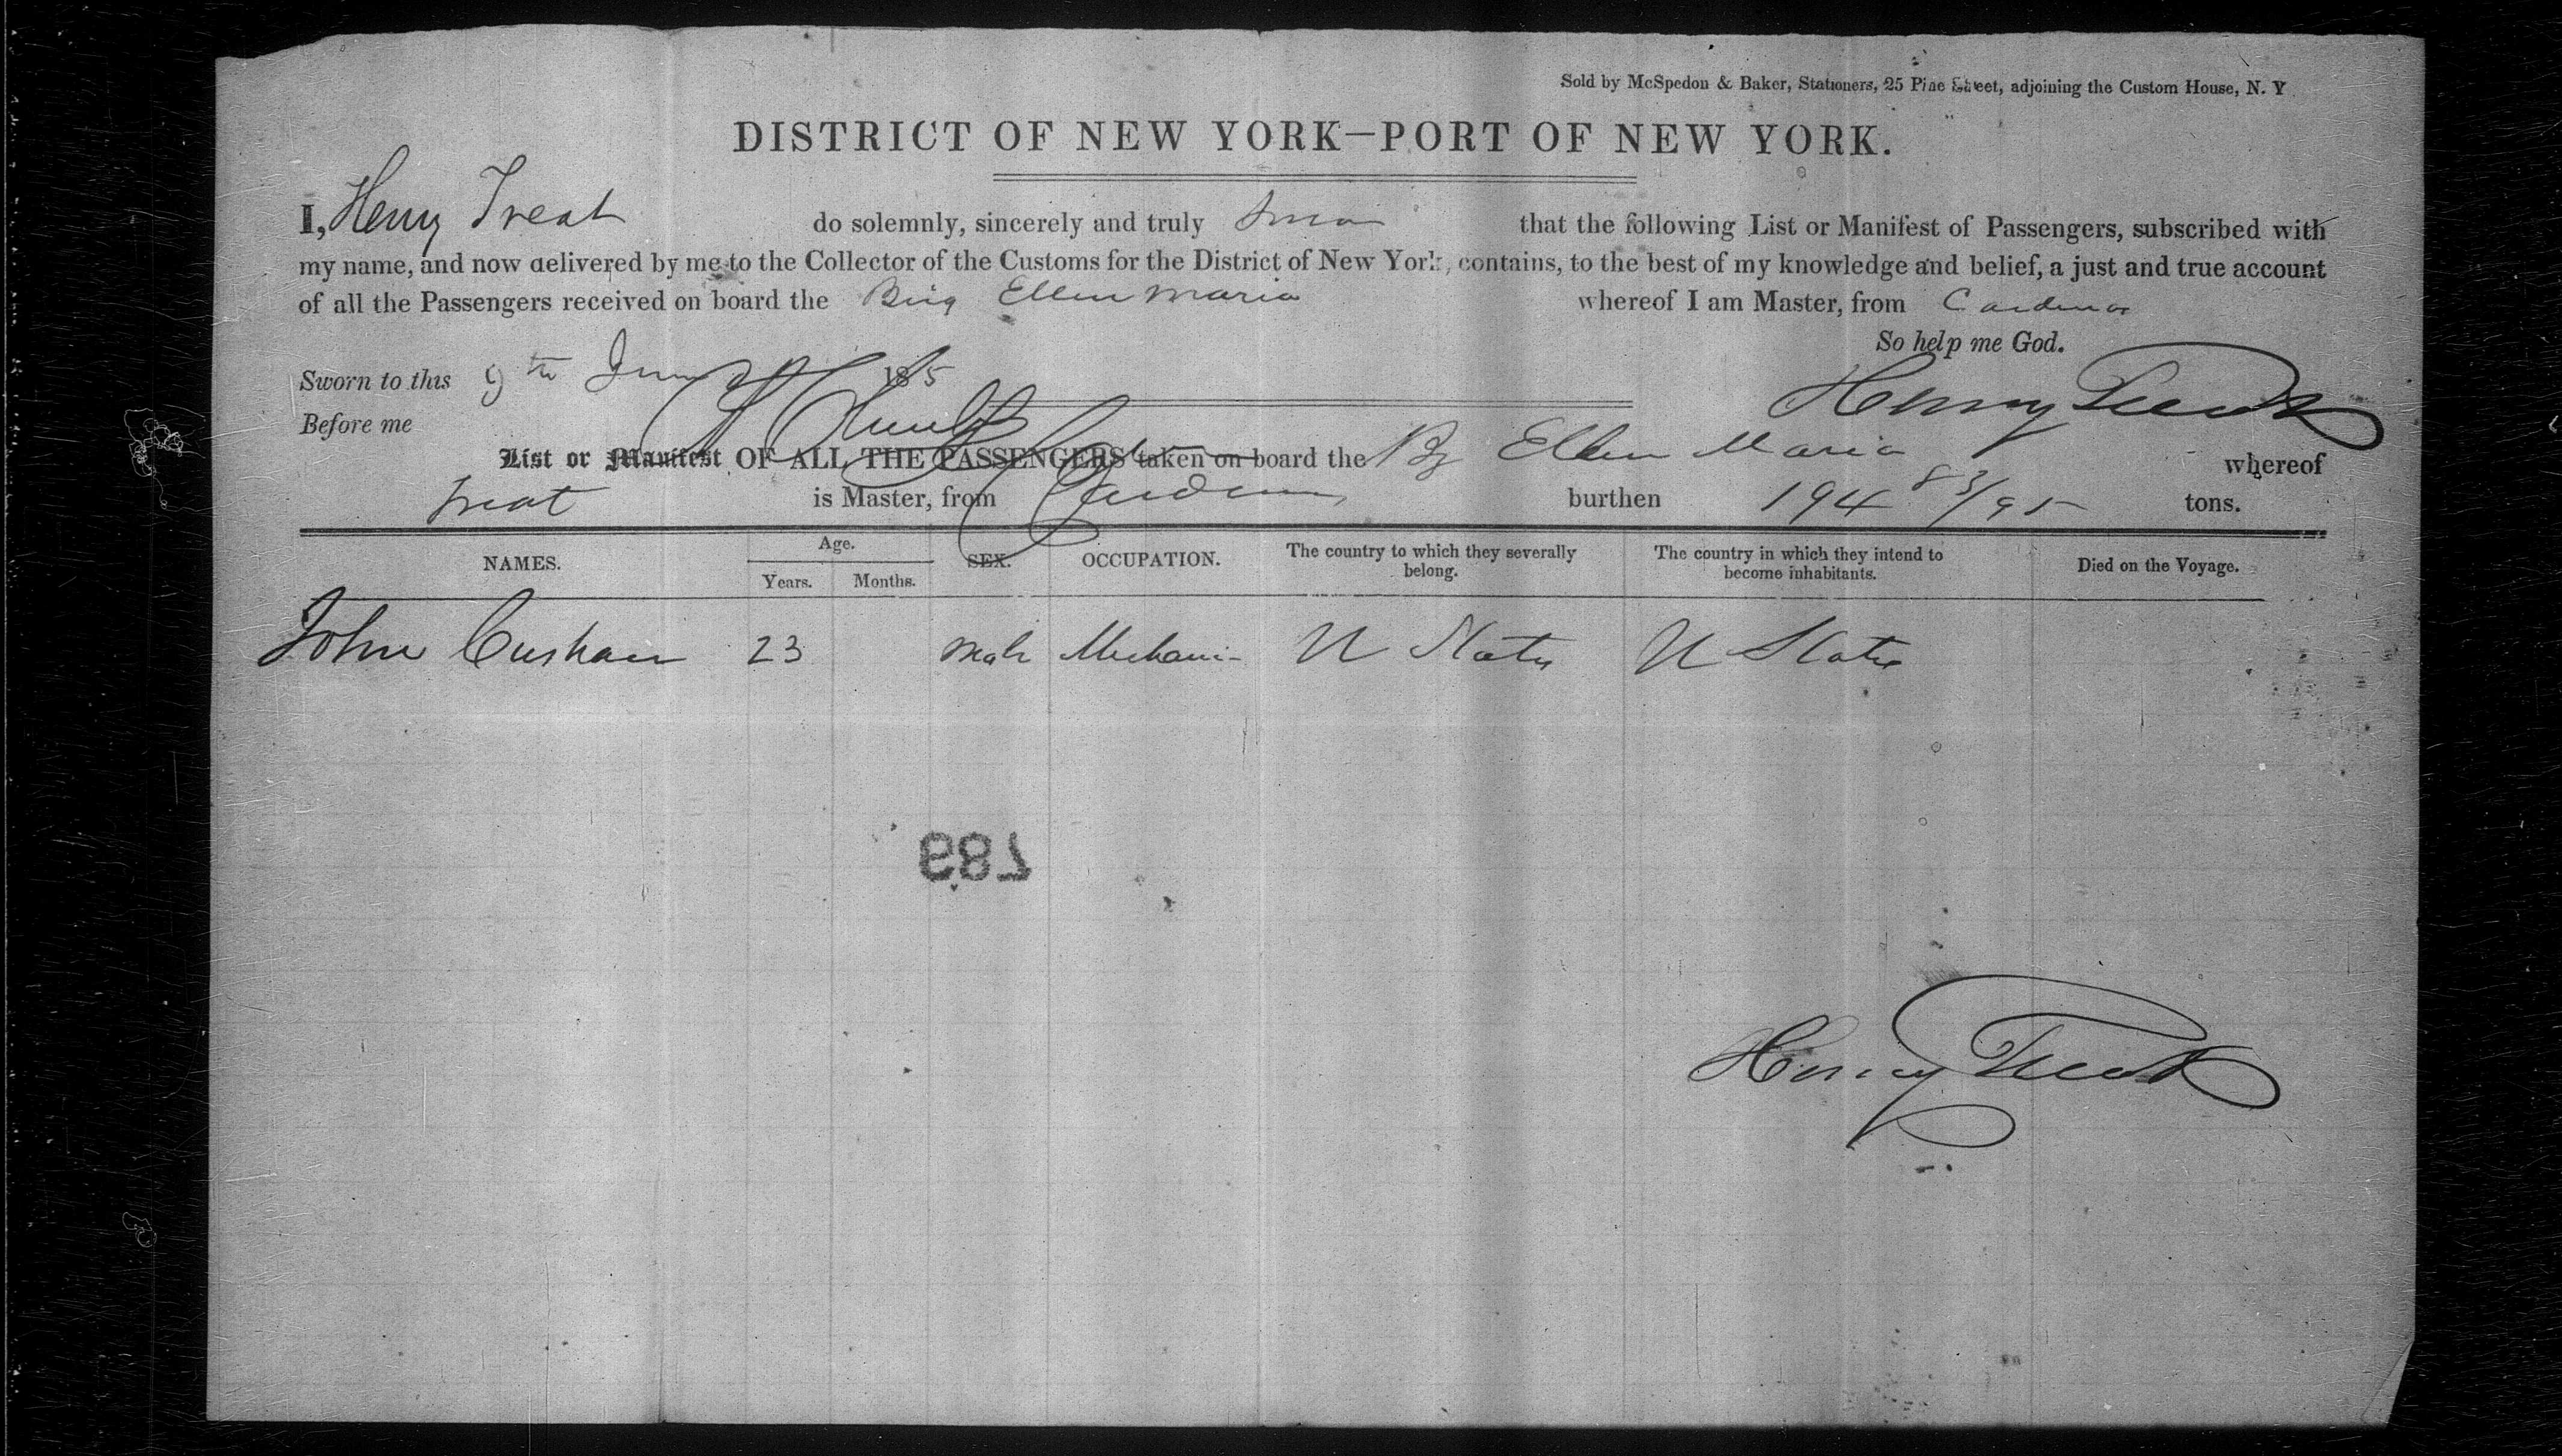 Sold by McSpedon & Baker, Stationers, 25 Pine Street, adjoining the Custom House, N. Y
DISTRICT OF NEW YORK—PORT OF NEW YORK.
I, Henry Treat do solemnly, sincerely and truly swear that the following List or Manifest of Passengers, subscribed with
my name, and now delivered by me to the Collector of the Customs for the District of New York, contains, to the best of my knowledge and belief, a just and true account
of all the Passengers received on board the Brig Ellen Maria whereof I am Master, from Cardenas
So help me God.
Sworn to this 9th June 185
Henry Treat
Before me
List or Manifest OF ALL THE PASSENGERS taken on board the Bg Ellen Maria whereof
Treat is Master, from Cardenas burthen 194 83/95 tons.
NAMES. Age. Years. Months. SEX. OCCUPATION. The country to which they severally belong. The country in which they intend to become inhabitants. Died on the Voyage.
John 23 Male Mechanic U States U States
789
Henry Treat